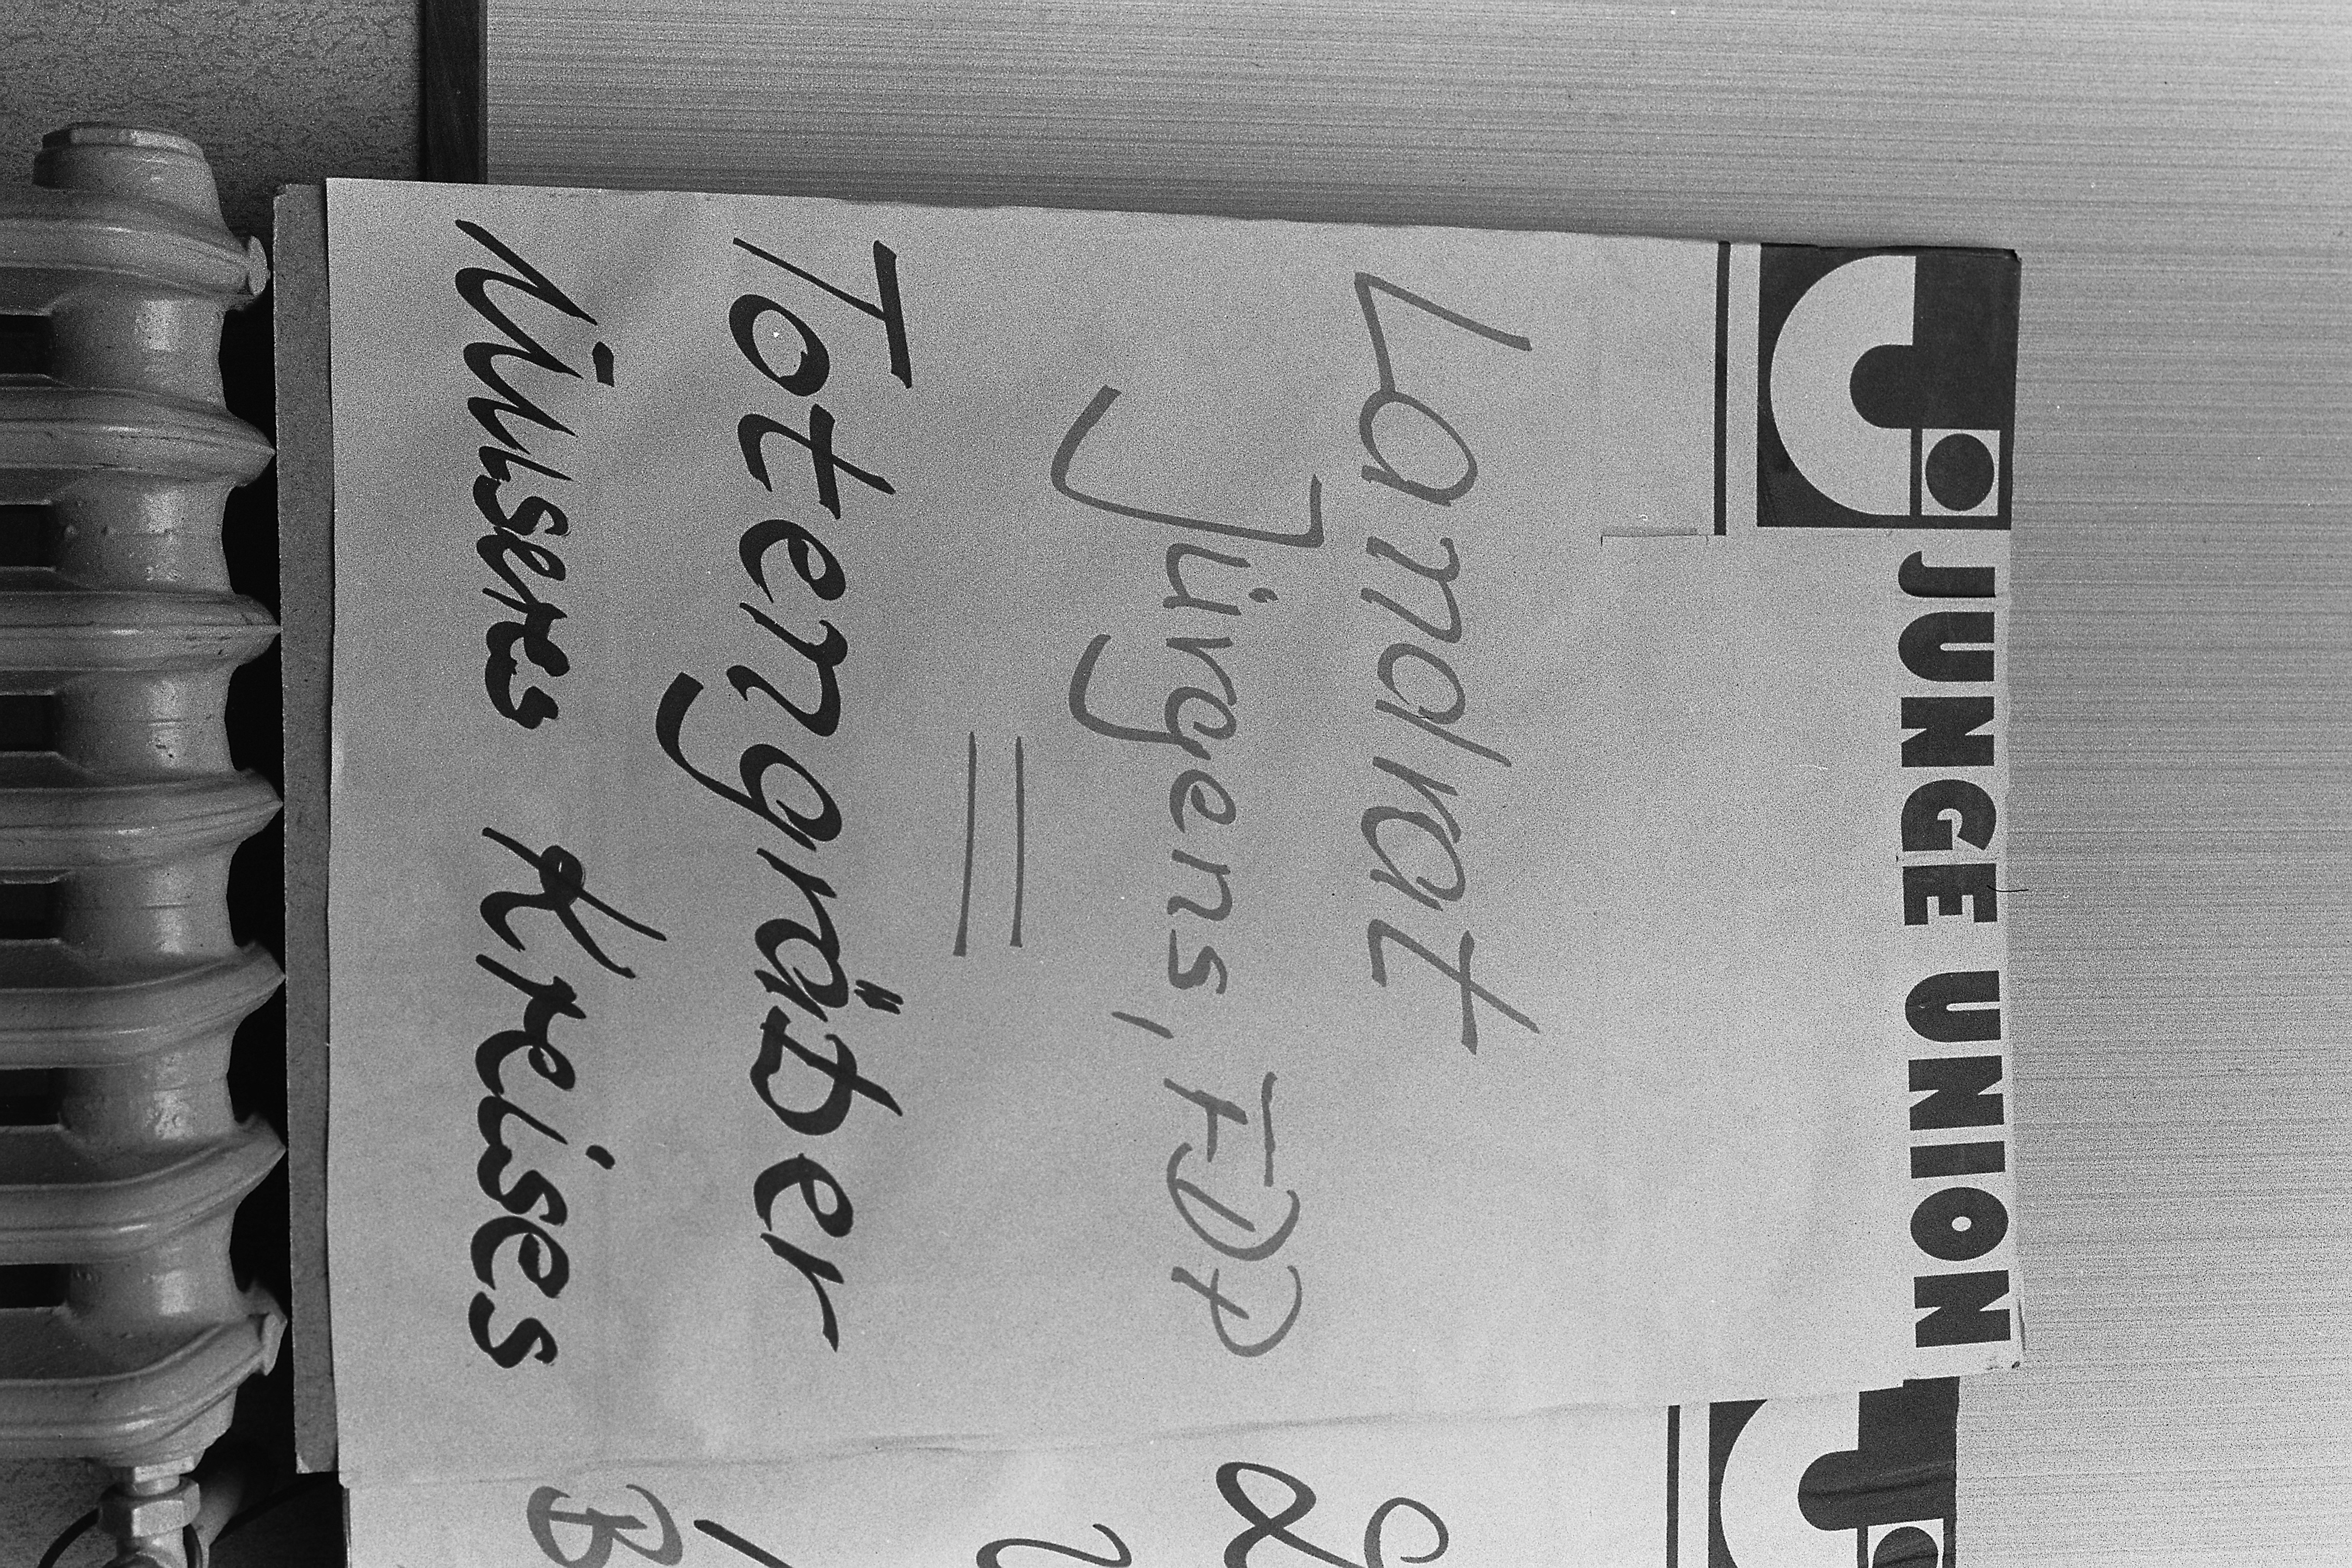 JUNGE UNION
Landrat
Jürgens, FDP
=
Totengräber
Unseres Kreises
B